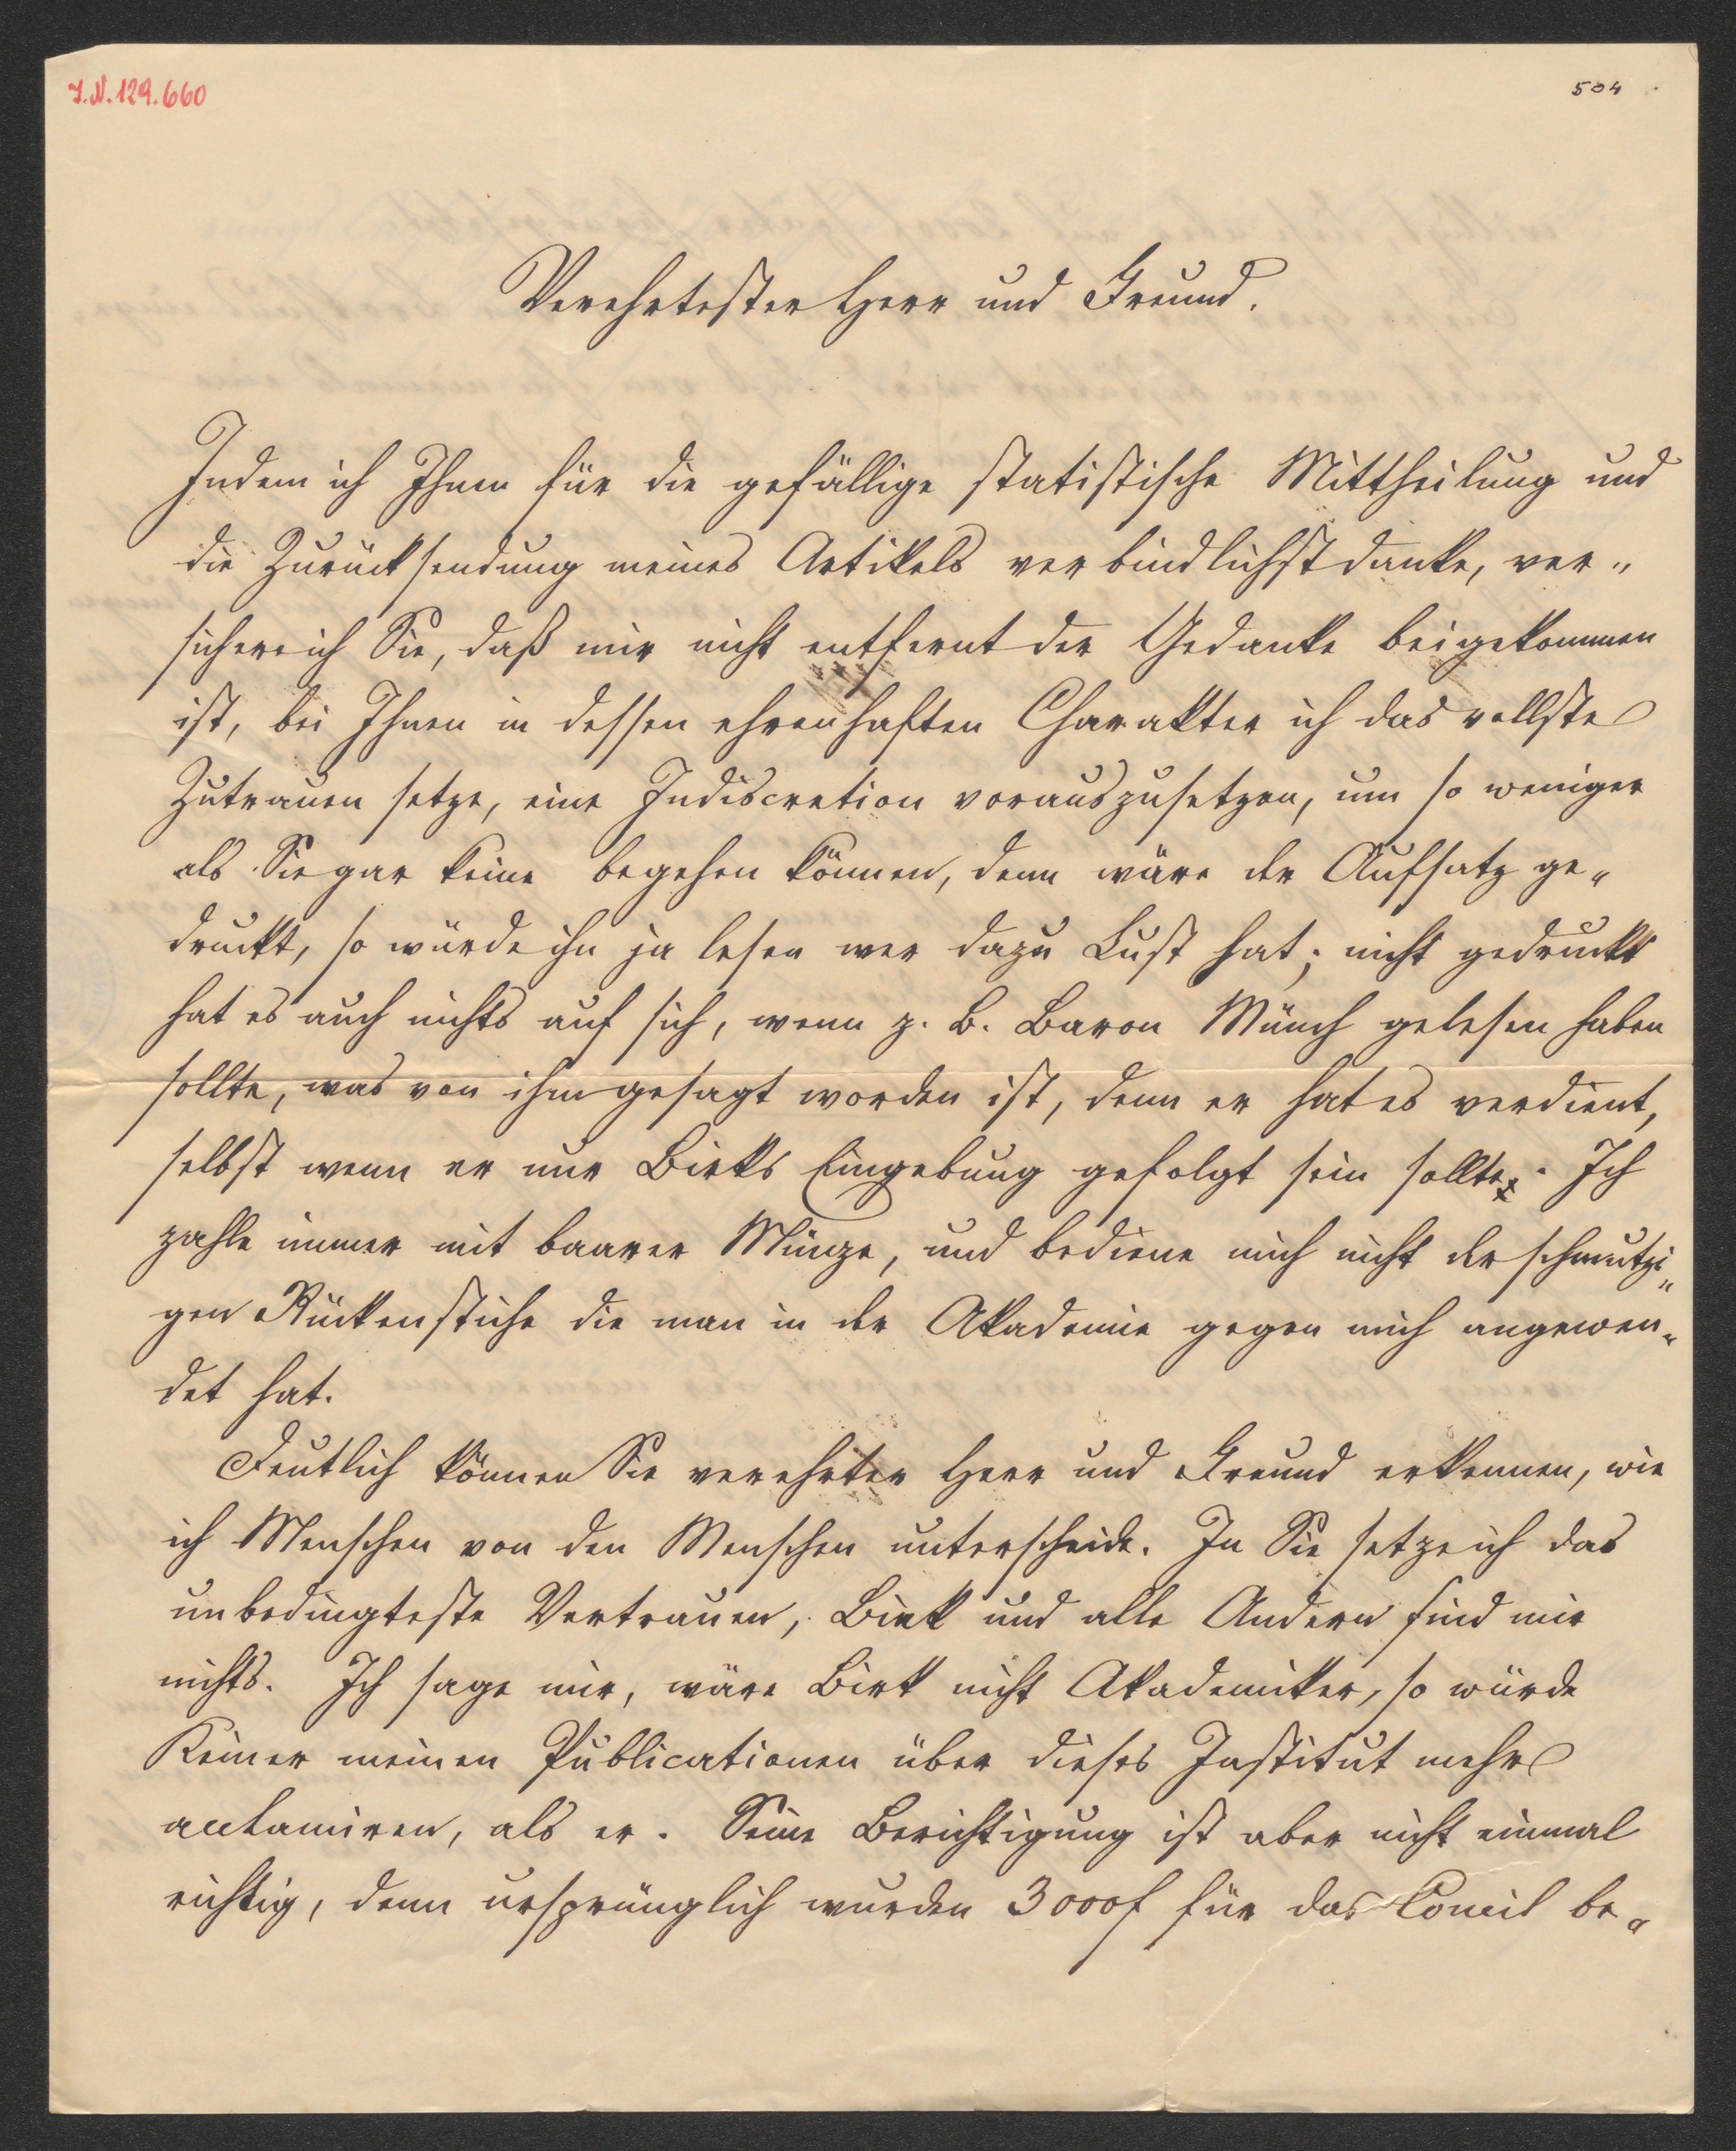 I.N. 129.660
504
Verehrtester Herr und Freund.
Indem ich Ihnen für die gefällige statistische Mittheilung und
die Zurücksendung meines Artikels verbindlichst danke, ver-
sichere ich Sie, daß mir nicht entfernt der Gedanke beigekommen
ist, bei Ihnen in dessen ehrenhaften Charakter ich das vollste
Zutrauen setze, eine Indiscretion vorauszusetzen, um so weniger
als Sie gar keine begehen können, denn wäre der Aufsatz ge-
druckt, so würde ihn ja lesen wer dazu Lust hat; nicht gedruckt
hat es auch nichts auf sich, wenn z. B. Baron Münch gelesen haben
sollte, was von ihm gesagt worden ist, denn er hat es verdient,
selbst wenn er nur Birks Eingebung gefolgt sein sollte. Ich
zahle immer mit baarer Münze, und bediene mich nicht der schmutzi-
gen Rückenstiche die man in der Akademie gegen mich angewen-
det hat.
Deutlich können Sie verehrter Herr und Freund erkennen, wie
ich Menschen von den Menschen unterscheide. In Sie setze ich das
unbedingteste Vertrauen, Birk und alle Andern sind mir
nichts. Ich sage nur, wäre Birk nicht Akademiker, so würde
Keiner meinen Publicationen über dieses Institut mehr
acclamiren, als er. Seine Berichtigung ist aber nicht einmal
richtig, denn ursprünglich wurden 3000f für das Concil be-